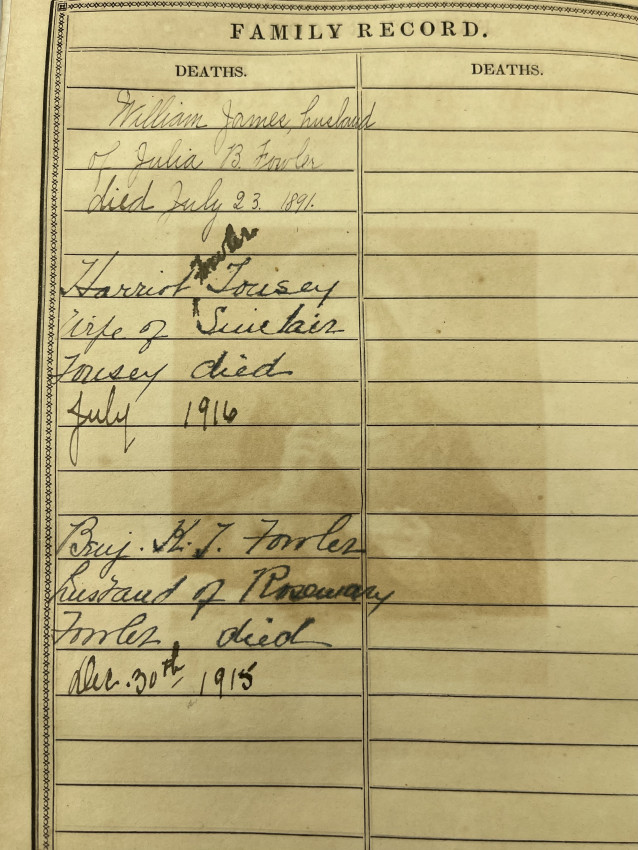 FAMILY RECORD.
DEATHS.
DEATHS.
William James, husband
of Julia B. Fowler
died July 23. 1891.
Fowler
Harriot Tousey
wife of Sinclair
Tousey died
July 1916
Benj. K. T. Fowler
husband of Rosemary
Fowler died
Dec. 30th 1915